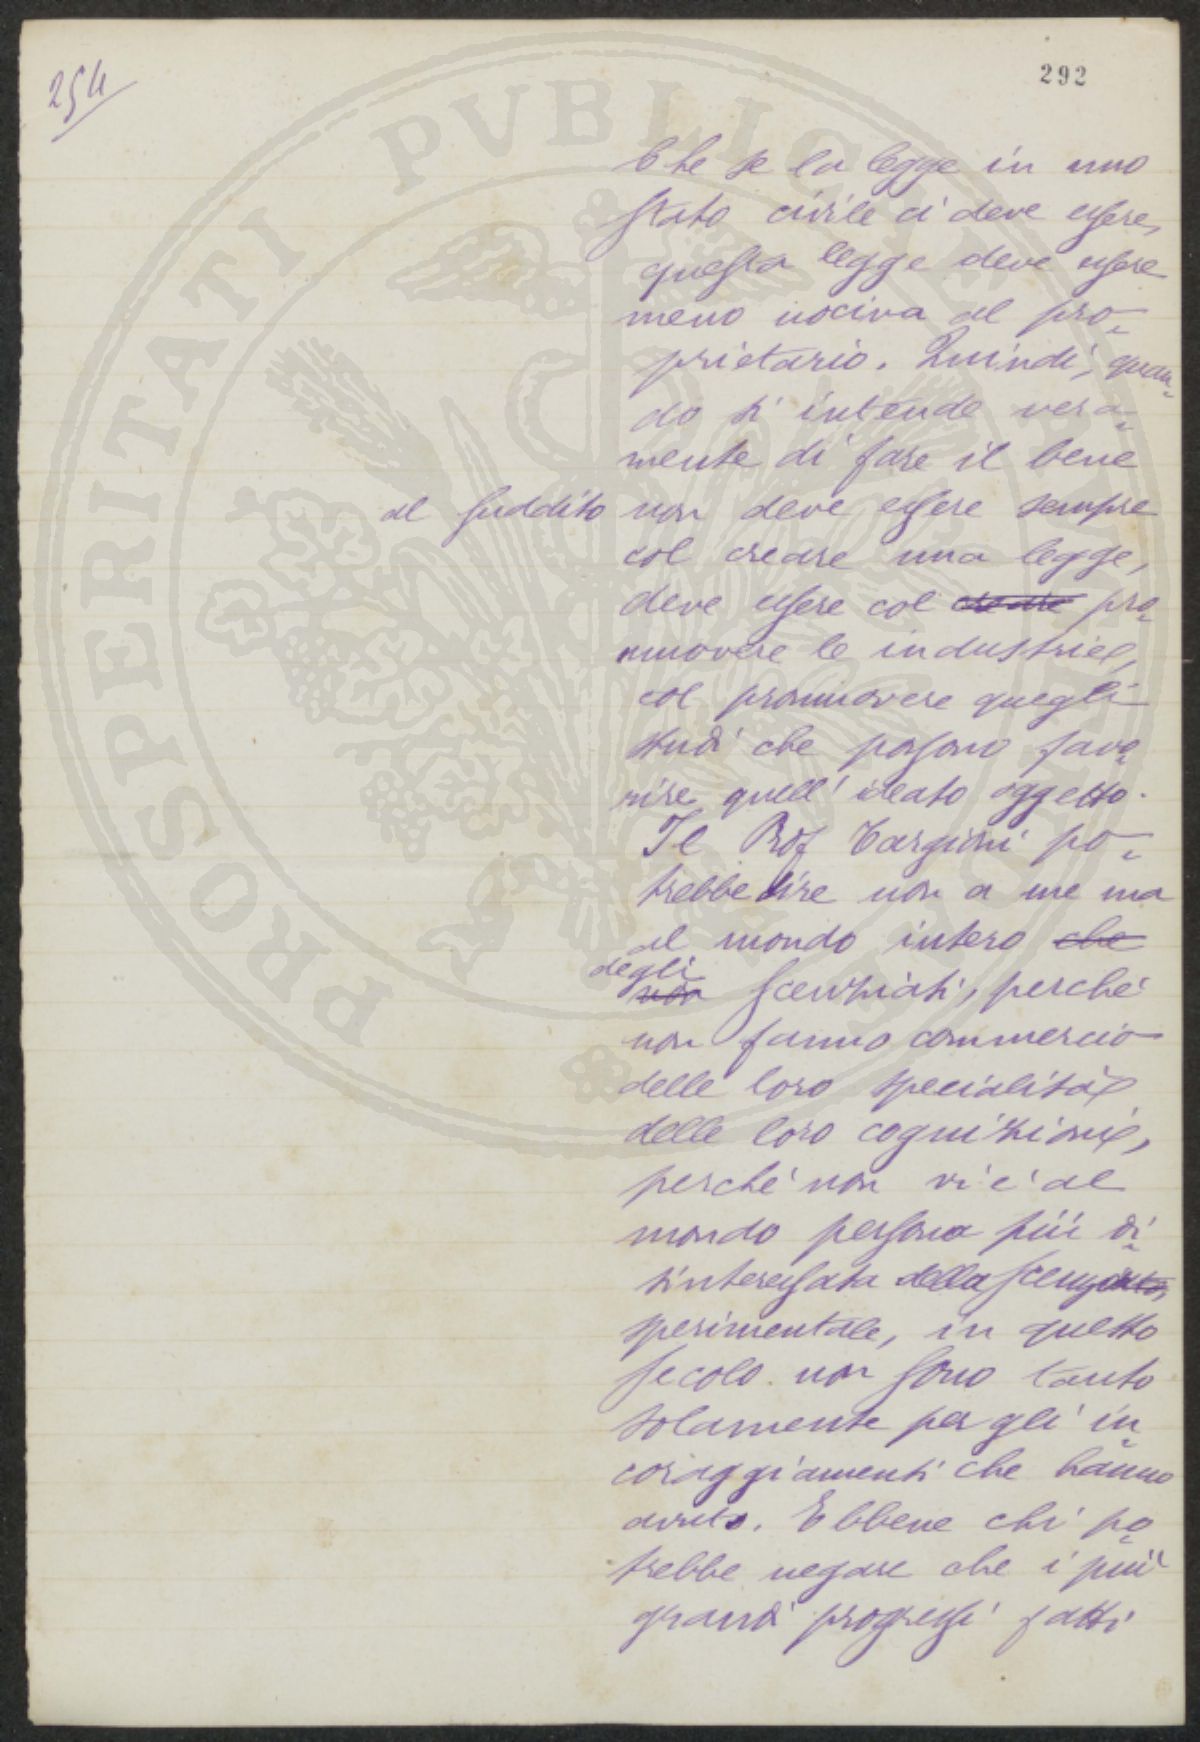 254
292
Che se la legge in uno
Stato civile ci deve essere,
questa legge deve essere
meno nociva al pro-
prietario. Quindi, quan-
do si intende vera-
mente di fare il bene
al suddito non deve essere sempre
col creare una legge,
deve essere col creare pro-
muovere le industrie,
col promuovere quegli
studi che possano favo-
rire quell' ideato oggetto.
Il Prof Targioni po-
trebbe dire non a me ma
al mondo intero che
degli
non Scenziati, perché
non fanno commercio
delle loro specialità
delle loro cognizioni,
perché non vi è al
mondo persona più di-
sinteressata della Scenziato,
sperimentale, in questo
secolo non sono tanto
solamente per gli in-
coraggiamenti che hanno
avuto. Ebbene chi po-
trebbe negare che i più
grandi progressi fatti
PROSPERITATI PVBLICAE